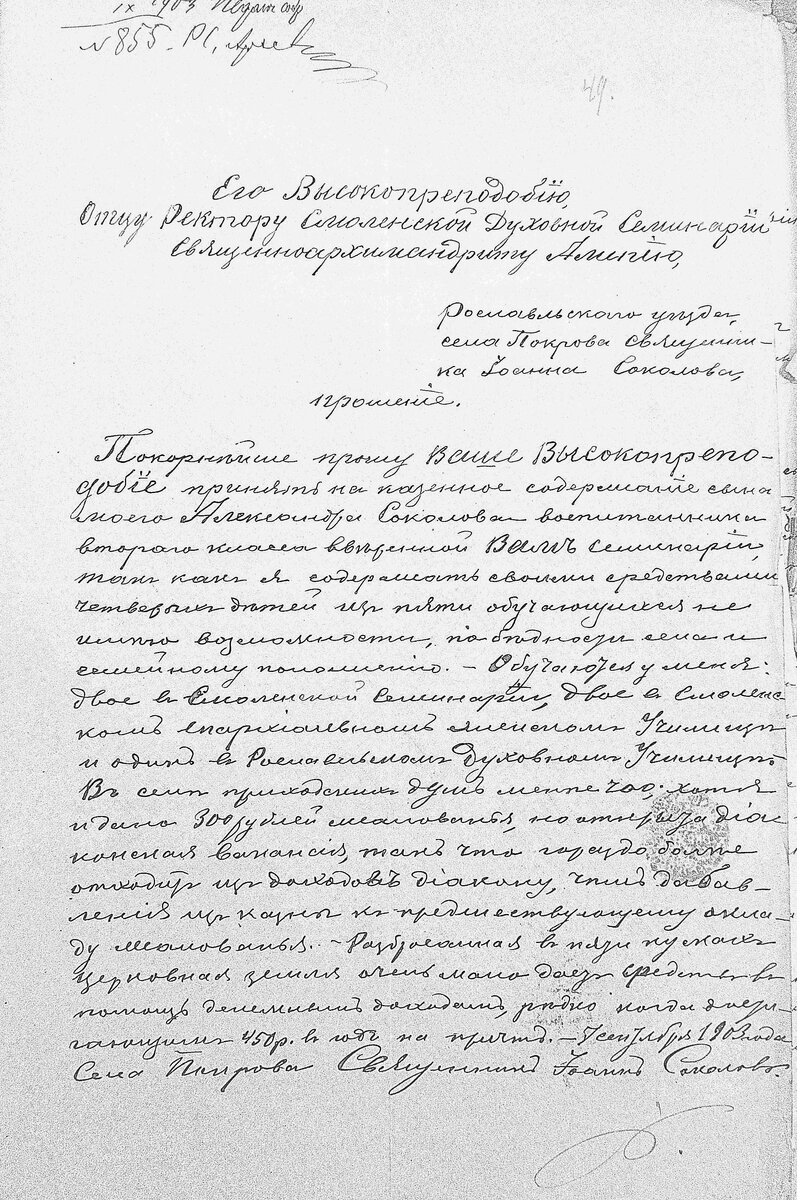 IX 1903
№ 855.
49.
Его Высокопреподобію,
Отцу Ректору Смоленской Духовной Семинаріи
Священноархимандриту
Рославльскаго уѣзда,
села Покрова священни-
ка Іоанна Соколова,
прошеніе.
Покорнѣйше прошу Ваше Высокопрепо-
добіе принять на казенное содержаніе сына
моего Александра Соколова воспитанника
второго класса ввѣренной Вамъ семинаріи,
такъ какъ я содержать своими средствами
четверыхъ дѣтей изъ пяти обучающихся не
имѣю возможности, по бѣдности села и
семейному положенію. – Обучаются у меня:
двое въ Смоленской Семинаріи, двое въ Смоленс-
комъ епархіальномъ женскомъ Училищѣ
и одинъ въ Рославльскомъ Духовномъ Училищѣ.
Въ селѣ приходскихъ душъ менѣе 700; хотя
и дано 300 рублей жалованья, но открыта діа-
конская вакансія, такъ что гораздо болѣе
отходитъ изъ доходовъ діакону, чѣмъ добав-
ленія изъ казны къ предшествующему окла-
ду жалованья. – Разбросанная въ пяти кускахъ
церковная земля очень мало даетъ средствъ въ
помощь денежнымъ доходамъ, рѣдко когда дости-
гающимъ 450 р. въ годъ на причтъ. – 7 сентября 1903 года
Села Покрова Священникъ Іоаннъ Соколовъ.